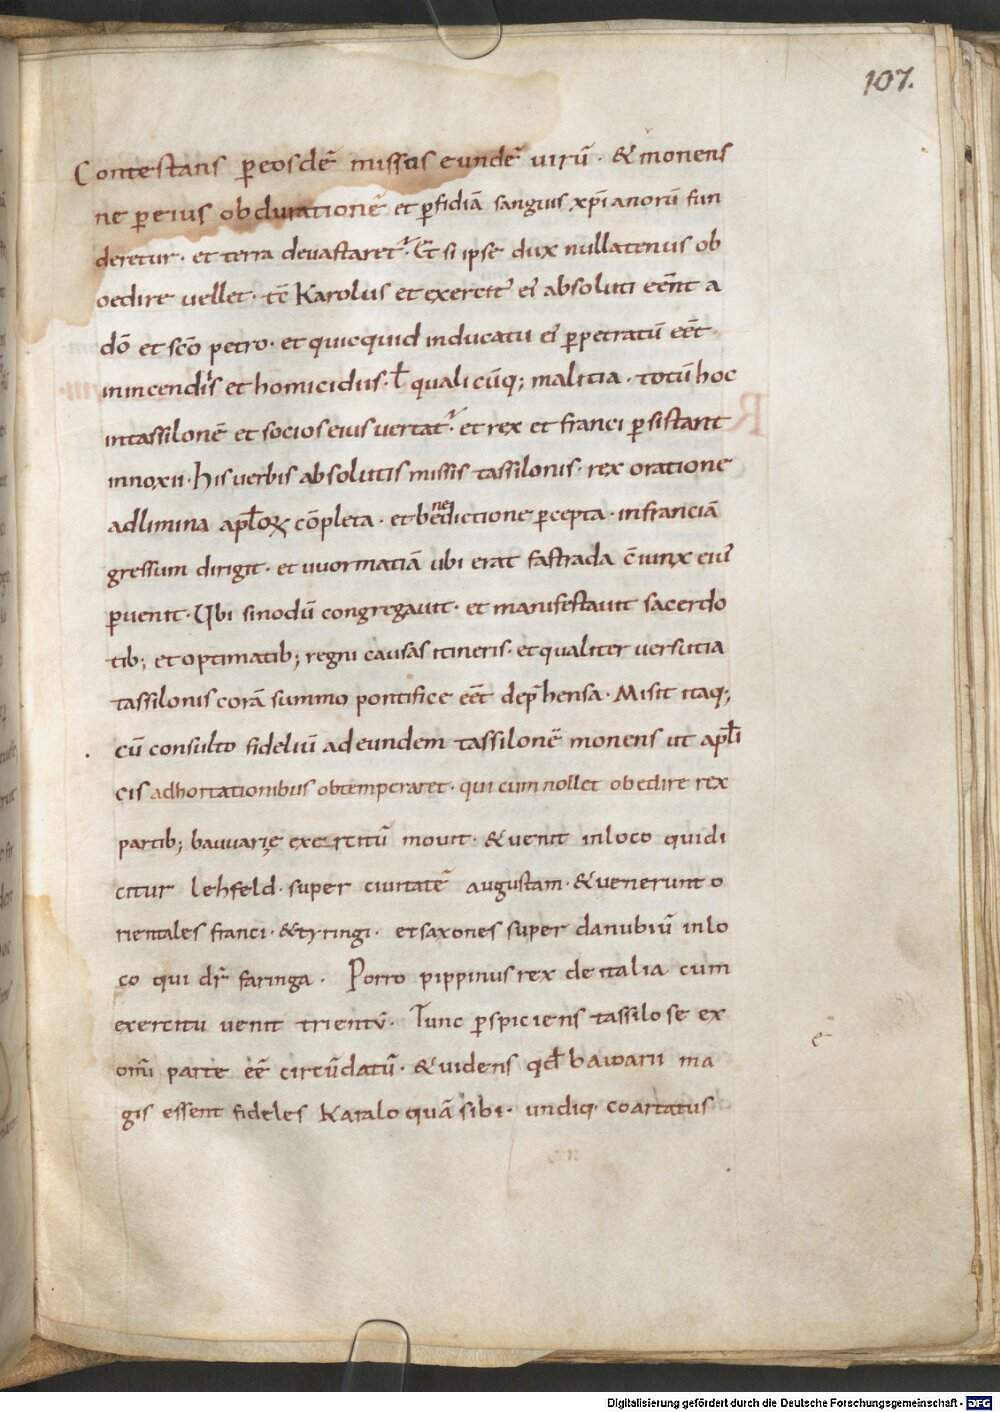 107.
Contestans p eosdē missis eundē uirū · & monens
ne p eius obdurationē et pfidiā sanguis xp̄ianorū fun
deretur · et terra deuastaret᷑ · Et si ipse dux nullatenus ob
oedire uellet · tc̄ Karolus et exercit᷒ ei᷒ absoluti eēnt a
dō et scō petro · et quicquid inducatu ei᷒ ppetratū eēt
inincendiis et homicidiis · ł qualicūq; malitia · totū hoc
intassilonē et socios eius uertat᷑ · et rex et franci psistant
innoxii · his uerbis absolutis missis tassilonis · rex oratione
adlimina apłoꝝ cōpleta · et benedictione pcepta · infranciā
gressum dirigit · et uuormatiā ubi erat fastrada c̄iunx ei᷒
puenit · Ubi sinodū congregauit · et manifestauit sacerdo
tib; et optimatib; regni causas itineris · et qualiter uersutia
tassilonis corā summo pontifice eēt dep̄hensa · Misit itaq;
cū consulto fideliū ad eundem tassilonē monens ut apłi
cis adhortationibus obtemperaret · qui cum nollet obedire rex
partib; bauuarię exercitū mouit · & uenit inloco qui di
citur lehfeld · super ciuitatē augustam · & uenerunt o
rientales franci · & tyringi · et saxones super danubiū inlo
co qui dr̄ faringa · Porro pippinus rex de italia cum
exercitu uenit trientū · Tunc pspiciens tassilo se ex
om̄i parte eē circūdatū · & uidens qđ bawarii ma
gis essent fideles Karalo quā sibi · undiq· coartatus
Digitalisierung gefördert durch die Deutsche Forschungsgemeinschaft - DFG